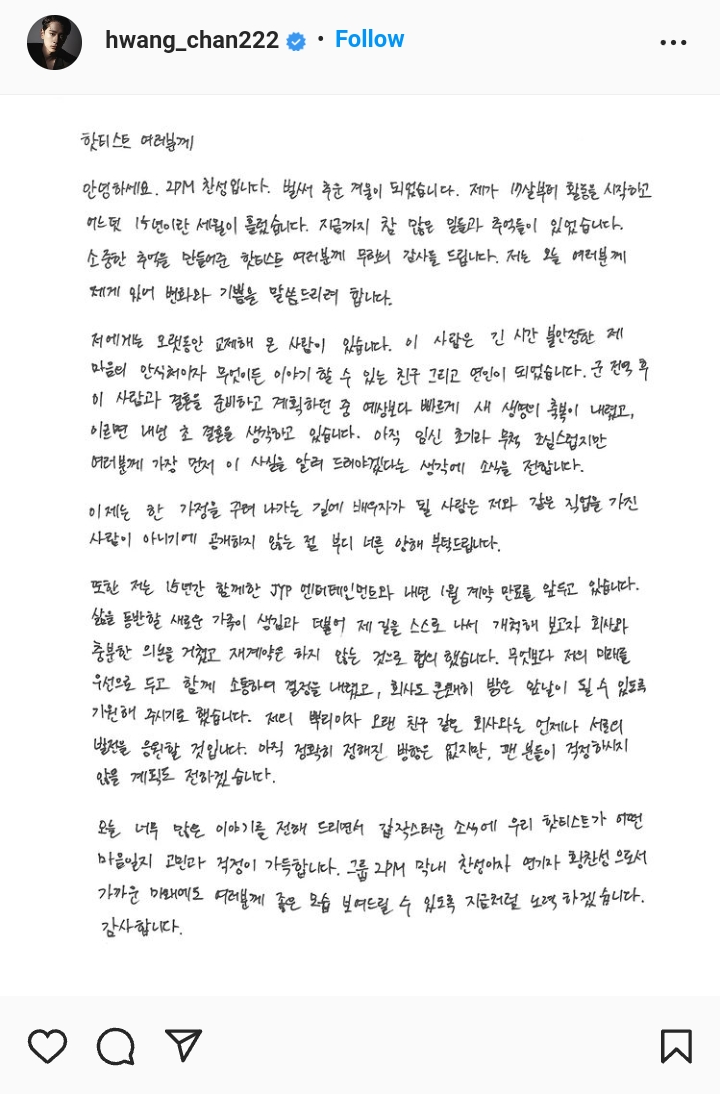 hwang_chan222 • Follow
핫티스트 여러분께
안녕하세요. 2PM 찬성입니다. 벌써 추운 겨울이 되었습니다. 제가 17살부터 활동을 시작하고
어느덧 15년이란 세월이 흘렀습니다. 지금까지 참 많은 일들과 추억들이 있었습니다.
소중한 추억을 만들어준 핫티스트 여러분께 무한히 감사를 드립니다. 저는 오늘 여러분께
제게 있어 변화와 기쁨을 말씀드리려 합니다.
저에게는 오랫동안 교제해 온 사람이 있습니다. 이 사람은 긴 시간 불안정한 제
마음의 안식처이자 무엇이든 이야기 할 수 있는 친구 그리고 연인이 되었습니다. 군 전역 후
이 사람과 결혼을 준비하고 계획하던 중 예상보다 빠르게 새 생명의 축복이 내렸고,
이르면 내년 초 결혼을 생각하고 있습니다. 아직 임신 초기라 무척 조심스럽지만
여러분께 가장 먼저 이 사실을 알려 드려야겠다는 생각에 소식을 전합니다.
이제는 한 가정을 꾸려 나가는 길에 배우자가 될 사람은 저와 같은 직업을 가진
사람이 아니기에 공개하지 않는 점 부디 너른 양해 부탁드립니다.
또한 저는 15년간 함께한 JYP 엔터테인먼트와 내년 1월 계약 만료를 앞두고 있습니다.
삶을 동반할 새로운 가족이 생김과 더불어 제 길을 스스로 나서 개척해 보고자 회사와
충분한 의논을 거쳤고 재계약은 하지 않는 것으로 합의 했습니다. 무엇보다 저의 미래를
우선으로 두고 함께 소통하며 결정을 내렸고, 회사도 흔쾌히 밝은 앞날이 될 수 있도록
기원해 주시기로 했습니다. 저의 뿌리이자 오랜 친구 같은 회사와는 언제나 서로의
발전을 응원할 것입니다. 아직 정확히 정해진 방향은 없지만, 팬 분들이 걱정하시지
않을 계획도 전하겠습니다.
오늘 너무 많은 이야기를 전해 드리면서 갑작스러운 소식에 우리 핫티스트가 어떤
마음일지 고민과 걱정이 가득합니다. 그룹 2PM 막내 찬성이자 연기자 황찬성으로서
가까운 미래에도 여러분께 좋은 모습 보여드릴 수 있도록 지금처럼 노력하겠습니다.
감사합니다.